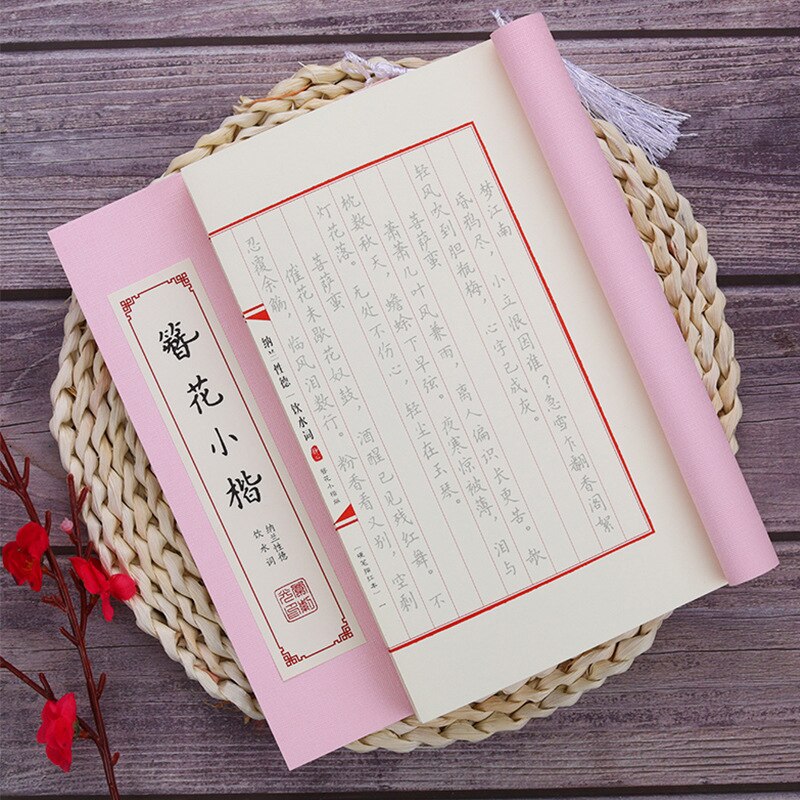 梦江南
昏鸦尽，小立恨因谁？急雪乍翻香阁絮
轻风吹到胆瓶梅，心字已成灰。
菩萨蛮
萧萧几叶风兼雨，离人偏识长更苦。欹
枕数秋天，蟾蜍下早弦。夜寒惊被薄，泪与
灯花落。无处不伤心，轻尘在玉琴。
菩萨蛮
催花未歇花奴鼓，酒醒已见残红舞。不
忍覆余觞，临风泪数行。粉香看又别，空剩
纳兰性德|饮水词
簪花小楷版
(硬笔描红本)
一
簪花小楷
纳兰性德
饮水词